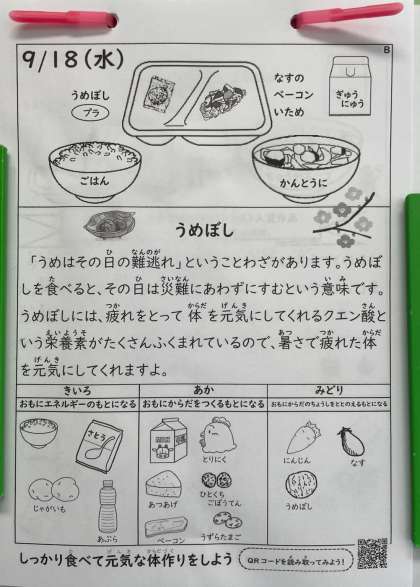 9/18(水)
B
うめぼし
プラ
なすの
ベーコン
いため
ぎゅう
にゅう
ごはん
かんとうに
うめぼし
「うめはその日の難逃れ」ということわざがあります。うめぼ
しを食べると、その日は災難にあわずにすむという意味です。
うめぼしには、疲れをとって体を元気にしてくれるクエン酸と
いう栄養素がたくさんふくまれているので、暑さで疲れた体
を元気にしてくれますよ。
きいろ
おもにエネルギーのもとになる
さとう
じゃがいも
あぶら
あか
おもにからだをつくるもとになる
とりにく
あつあげ
ひとくち
ごぼうてん
ベーコン
うずらたまご
みどり
おもにからだのちょうしをととのえるもとになる
にんじん
なす
うめぼし
しっかり食べて元気な体作りをしよう
QRコードを読み取ってみよう!